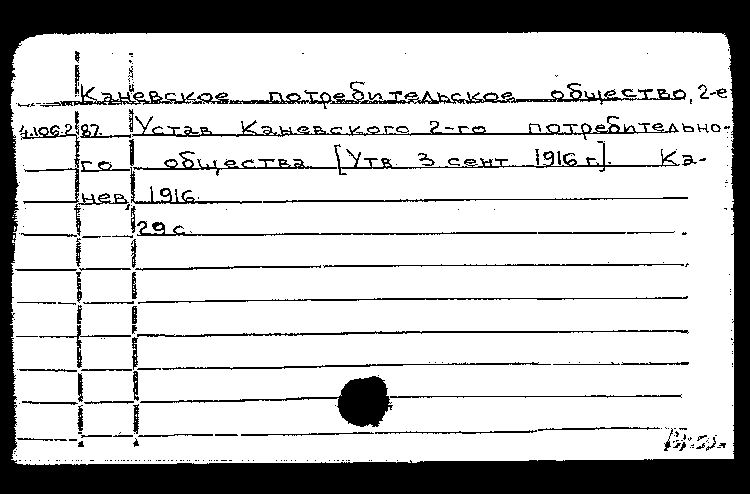 Каневское потребительское общество, 2-е
4.106.2.87. Устав Каневского 2-го потребительно-
го общества. [Утв. 3 сент. 1916 г.]. Ка-
нев, 1916.
29 с.